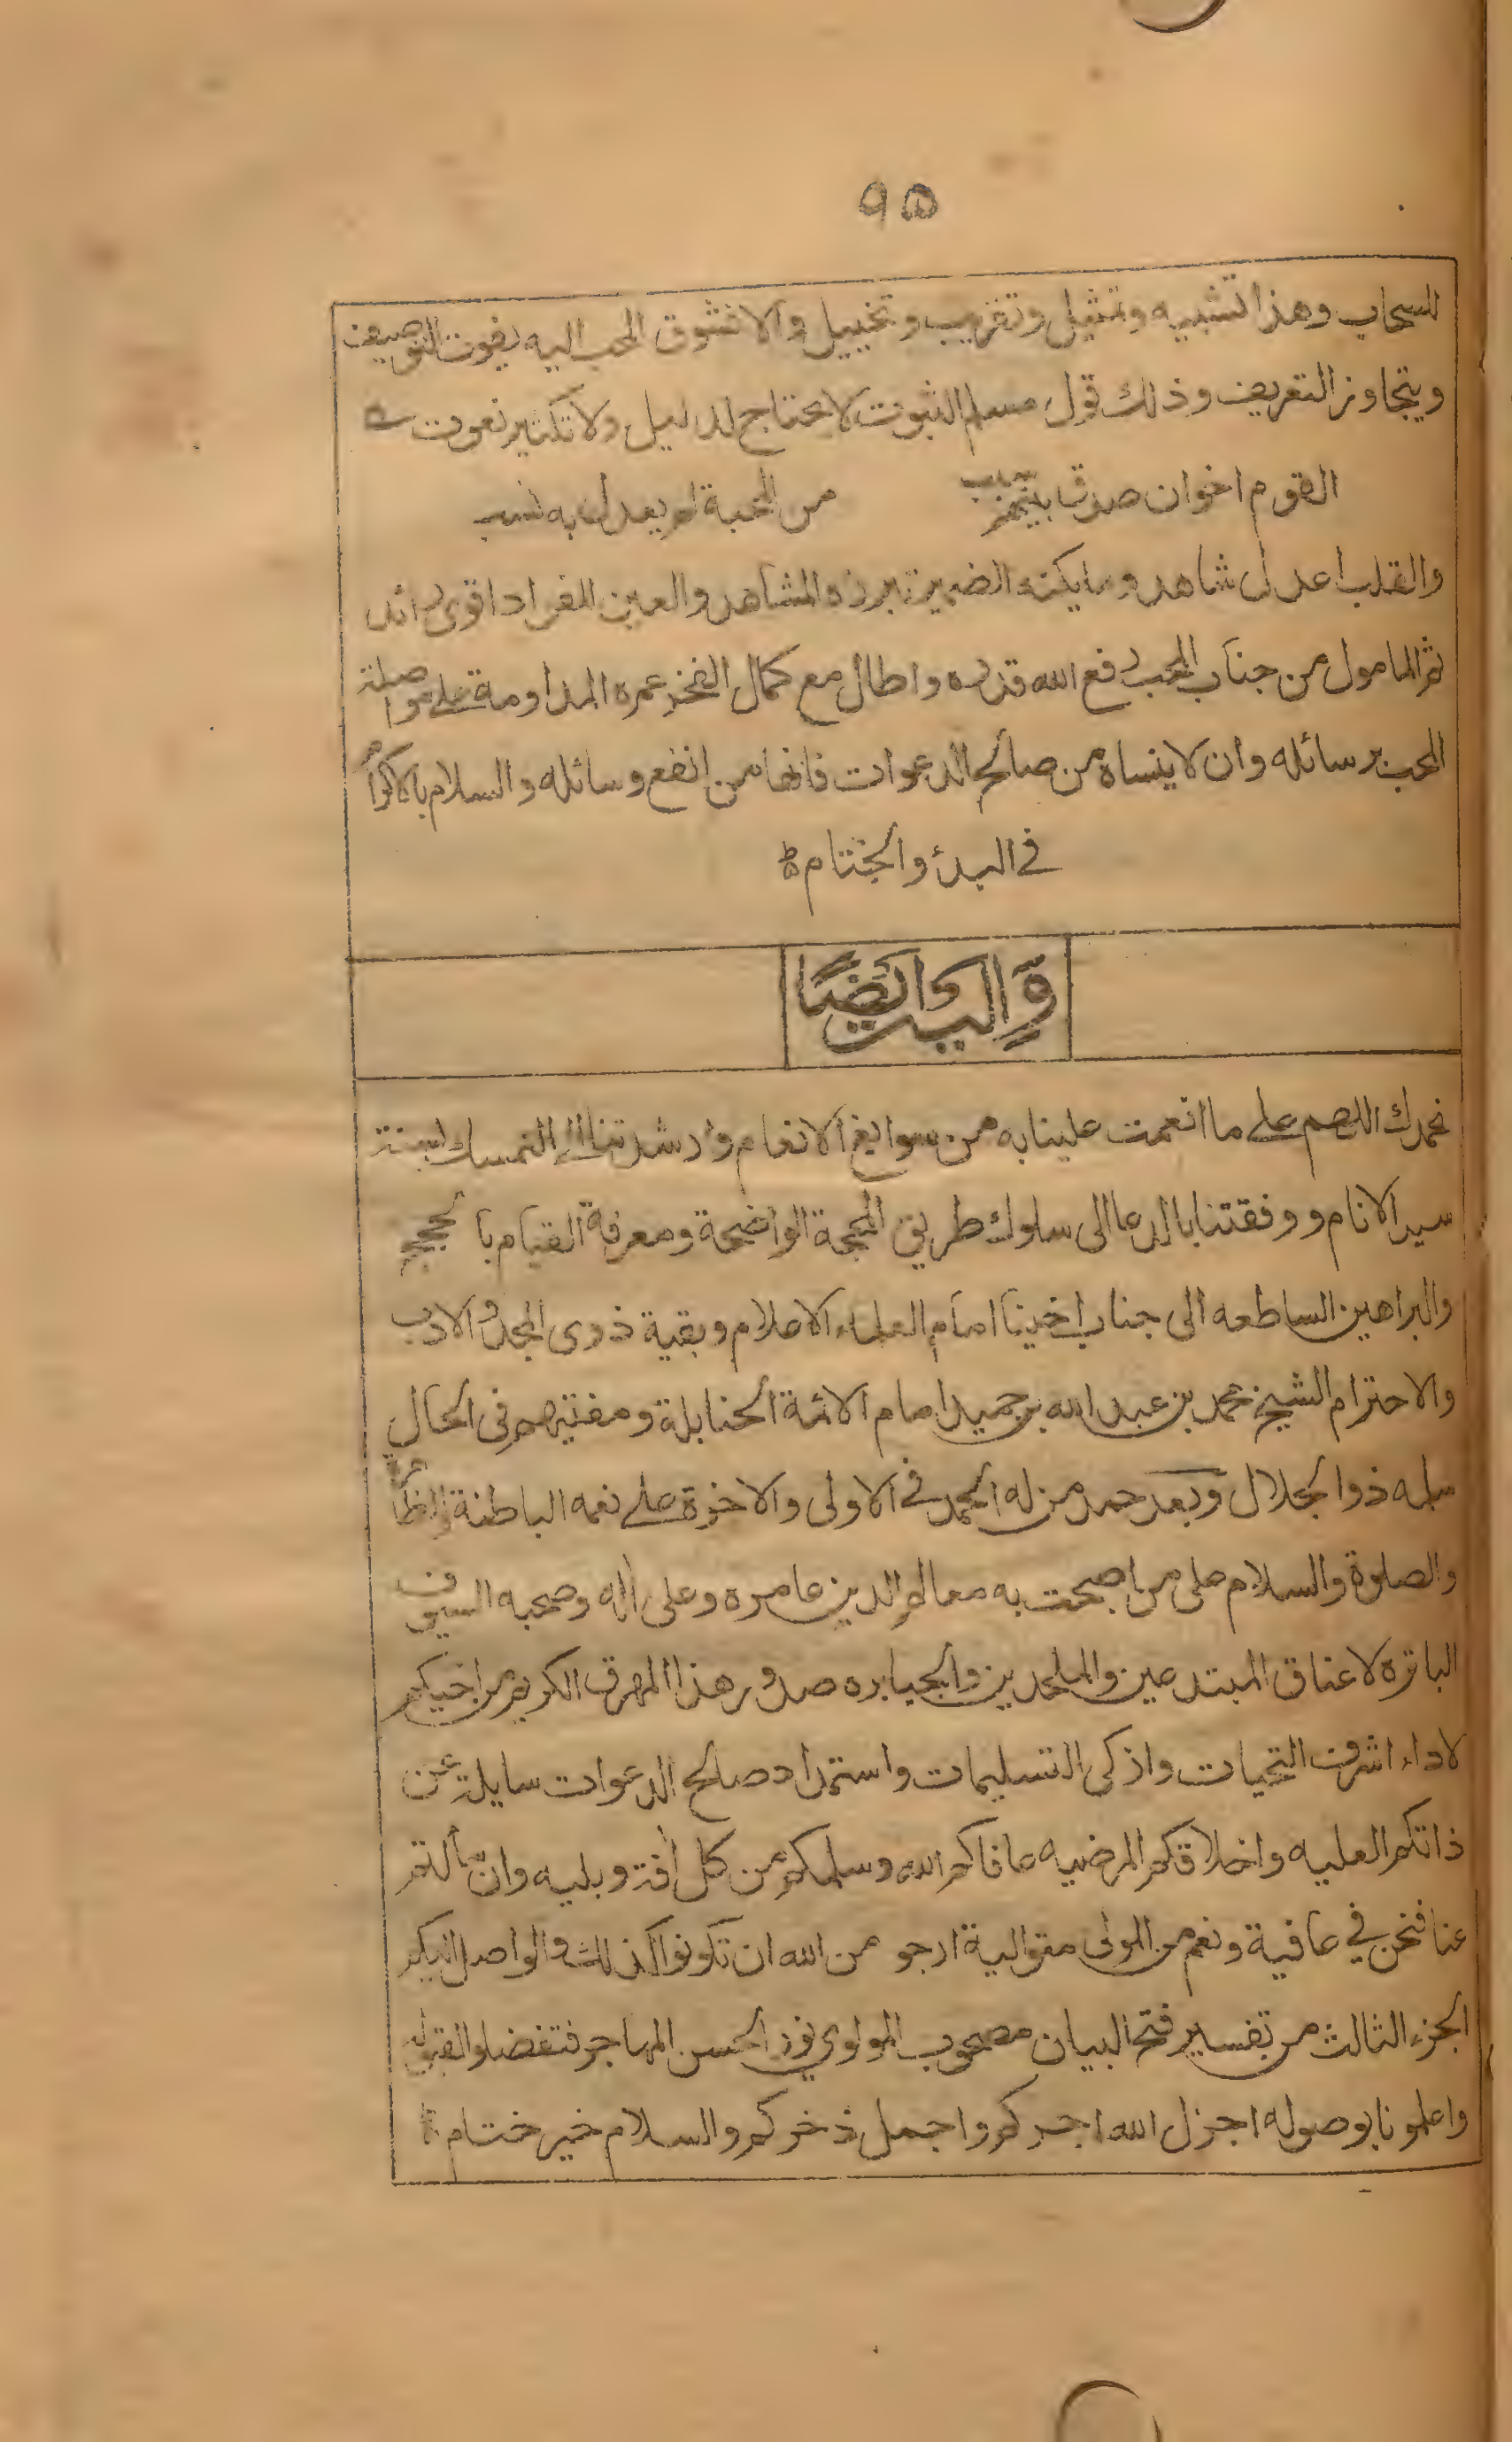 ٩٥
للسحاب وهذا تشبيه وتمثيل وتقريب وتخييل والا فتشوق المحب اليه يفوت التوصيف
ويتجاوز التعريف وذلك قول مسلم الثبوت لا يحتاج لدليل ولا تكثير نعوت
القوم اخوان صدق بينهم سبب من المحبة لم يعدل به نسب
والقلب اعدل شاهد وما يكنه الضمير تبرزه المشاهد والعين للفؤاد اقوى رائد
ثم المامول من جناب المحب رفع الله قدره واطال مع كمال الفخر عمره المداومة على مواصلة
المحب برسائله وان لا ينساه من صالح الدعوات فانها من انفع وسائله والسلام بالاكرام
في البدئ والختتام
وَاليه ايضًا
نحمدك اللهم على ما انعمت علينا به من سوابغ الانعام وارشدتنا الى التمسك بسنة
سيد الانام ووفقتنا بالدعا الى سلوك طريق المحجة الواضحة ومعرفة القيام بالحجج
والبراهين الساطعه الى جناب اخينا امام العلماء الاعلام وبقية ذوى المجد والادب
والاحترام الشيخ محمد بن عبد الله بن حميد امام الائمة الحنابلة ومفتيهم فى الحال
سلمه ذوالجلال وبعد حمد من له الحمد فى الاولى والاخرة على نعمه الباطنة والظاهرة
والصلوة والسلام على من اصبحت به معالم الدين عامره وعلى اله وصحبه السيوف
الباتره لاعناق المبتدعين والملحدين والجبابره صدور هذا المهرق الكريم من اخيكم
لاداء اشرف التحيات واذكى التسليمات واستمداد صالح الدعوات سايلة عن
ذاتكم العليه واخلاقكم المرضيه عافاكم الله وسلمكم من كل افة وبليه وان سألتم
عنا فنحن في عافية ونعم من المولى متوالية ارجو من الله ان تكونوا كذلك والواصل اليكم
الجزء الثالث من تفسير فتح البيان مصحوب المولوي نور الحسن المهاجر فتفضلوا لقبوله
واعلمونا بوصوله اجزل الله اجركم واجمل ذخركم والسلام خير ختام